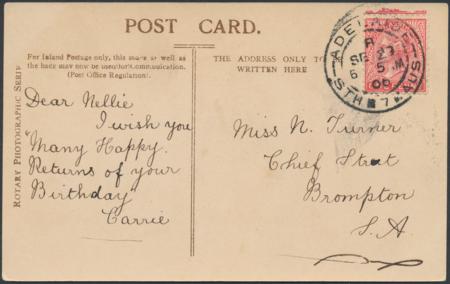 POST CARD.
For Inland Postage only, this space as well as
the back may now be used for communication.
(Post Office Regulation).
THE ADDRESS ONLY TO
WRITTEN HERE
ROTARY PHOTOGRAPHIC SERIE
Dear Nellie
I wish you
Many Happy
Returns of your
Birthday
Carrie
ADELAIDE
R
SE 29
6 5 M
06
STH 7 AUS
Miss N. Turner
Chief Street
Brompton
S.A